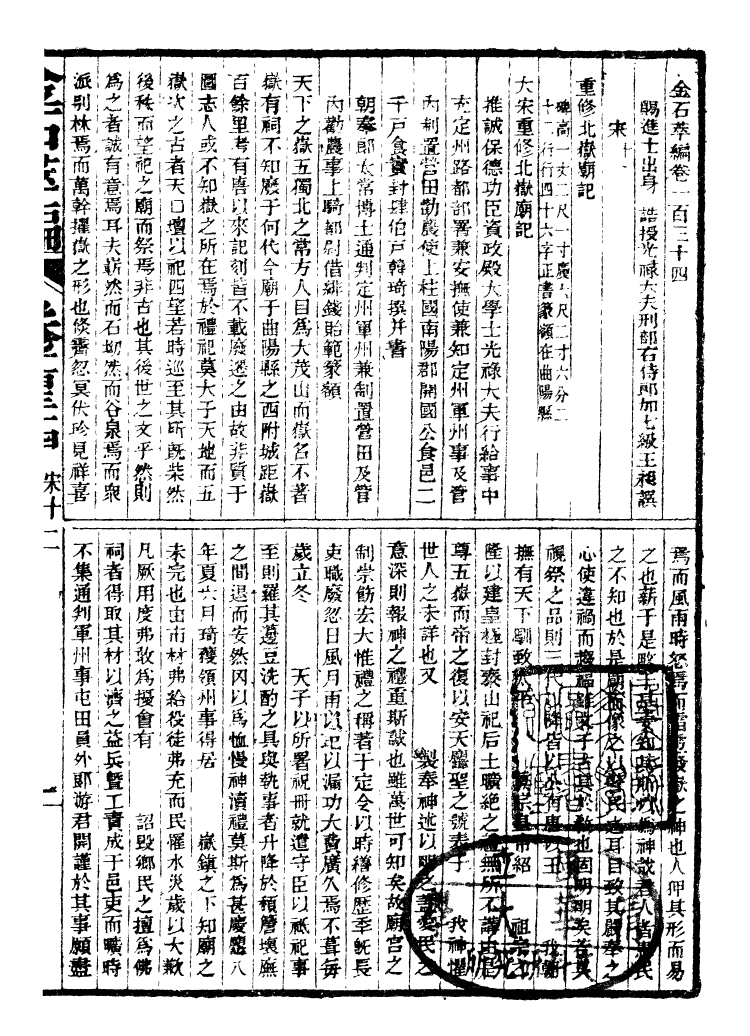 金石萃編卷一百三十四
賜進士出身 誥授光祿大夫刑部右侍郎加七級王昶譔
宋十二
重修北嶽廟記
碑高一丈二尺一寸廣六尺二寸六分二
十二行行四十六字正書篆額在曲陽縣
大宋重修北嶽廟記
推誠保德功臣資政殿大學士光祿大夫行給事中
充定州路都部署兼安撫使兼知定州軍州事及管
內制置營田勸農使上柱國南陽郡開國公食邑二
千戶食實封肆伯戶韓琦撰并書
朝奉郎太常博士通判定州軍州兼制置營田及管
內勸農事上騎都尉借緋錢貽範篆額
天下之嶽五獨北之常方人目為大茂山而嶽名不著
嶽有祠不知廢于何代今廟于曲陽縣之西附城距嶽
百餘里考有唐以來記刻皆不載廢遷之由故非質于
圖志人或不知嶽之所在焉於禮祀莫大于天地而五
嶽次之古者天口壇以祀四望若時巡至其所既柴然
後秩而望祀之廟而祭焉非古也其後世之文乎然則
為之者誠有意焉耳夫嶄然而石坳然而谷泉焉而眾
派別林焉而萬幹擢嶽之形也倏霽忽冥伏珍見祥喜
焉而風雨時怒焉而
嶽之神也人仰其形而易
之不知也於是廟而像之以
民之耳目致其嚴奉之
心使違禍而趨福
視祭之品則三代以降皆以公
撫有天下馴致
祖宗之
隆以建皇極封泰山祀后土曠絕之禮無所不講由是
尊五嶽而帝之復以安天聽聖之號
我神懼
世人之未詳也又 製奉神述以明之
愛民之
意深則報神之禮重斯誠也雖萬世可知矣故廟宮之
制崇飾宏大惟禮之稱著于定令以時繕修歷季既長
吏職廢忽日風月雨以圮以漏功大費廣久焉不葺每
歲立冬 天子以所署祝冊就遣守臣以祗祀事
至則羅其籩豆洗酌之具與執事者升降於頹簷壞廡
之間退而安然罔以為恤慢神瀆禮莫斯為甚慶曆八
年夏六月琦獲領州事得居 嶽鎮之下知廟之
未完也由南材弗給役徒弗充而民罹水災歲以大歉
凡厥用度弗敢為擾會有 詔毀鄉民之擅為佛
祠者得取其材以濟之益兵暨工責成于邑吏而曠時
不集通判軍州事屯田員外郎游君開謹於其事願盡
金石萃編 卷一百三十四 宋十二
一